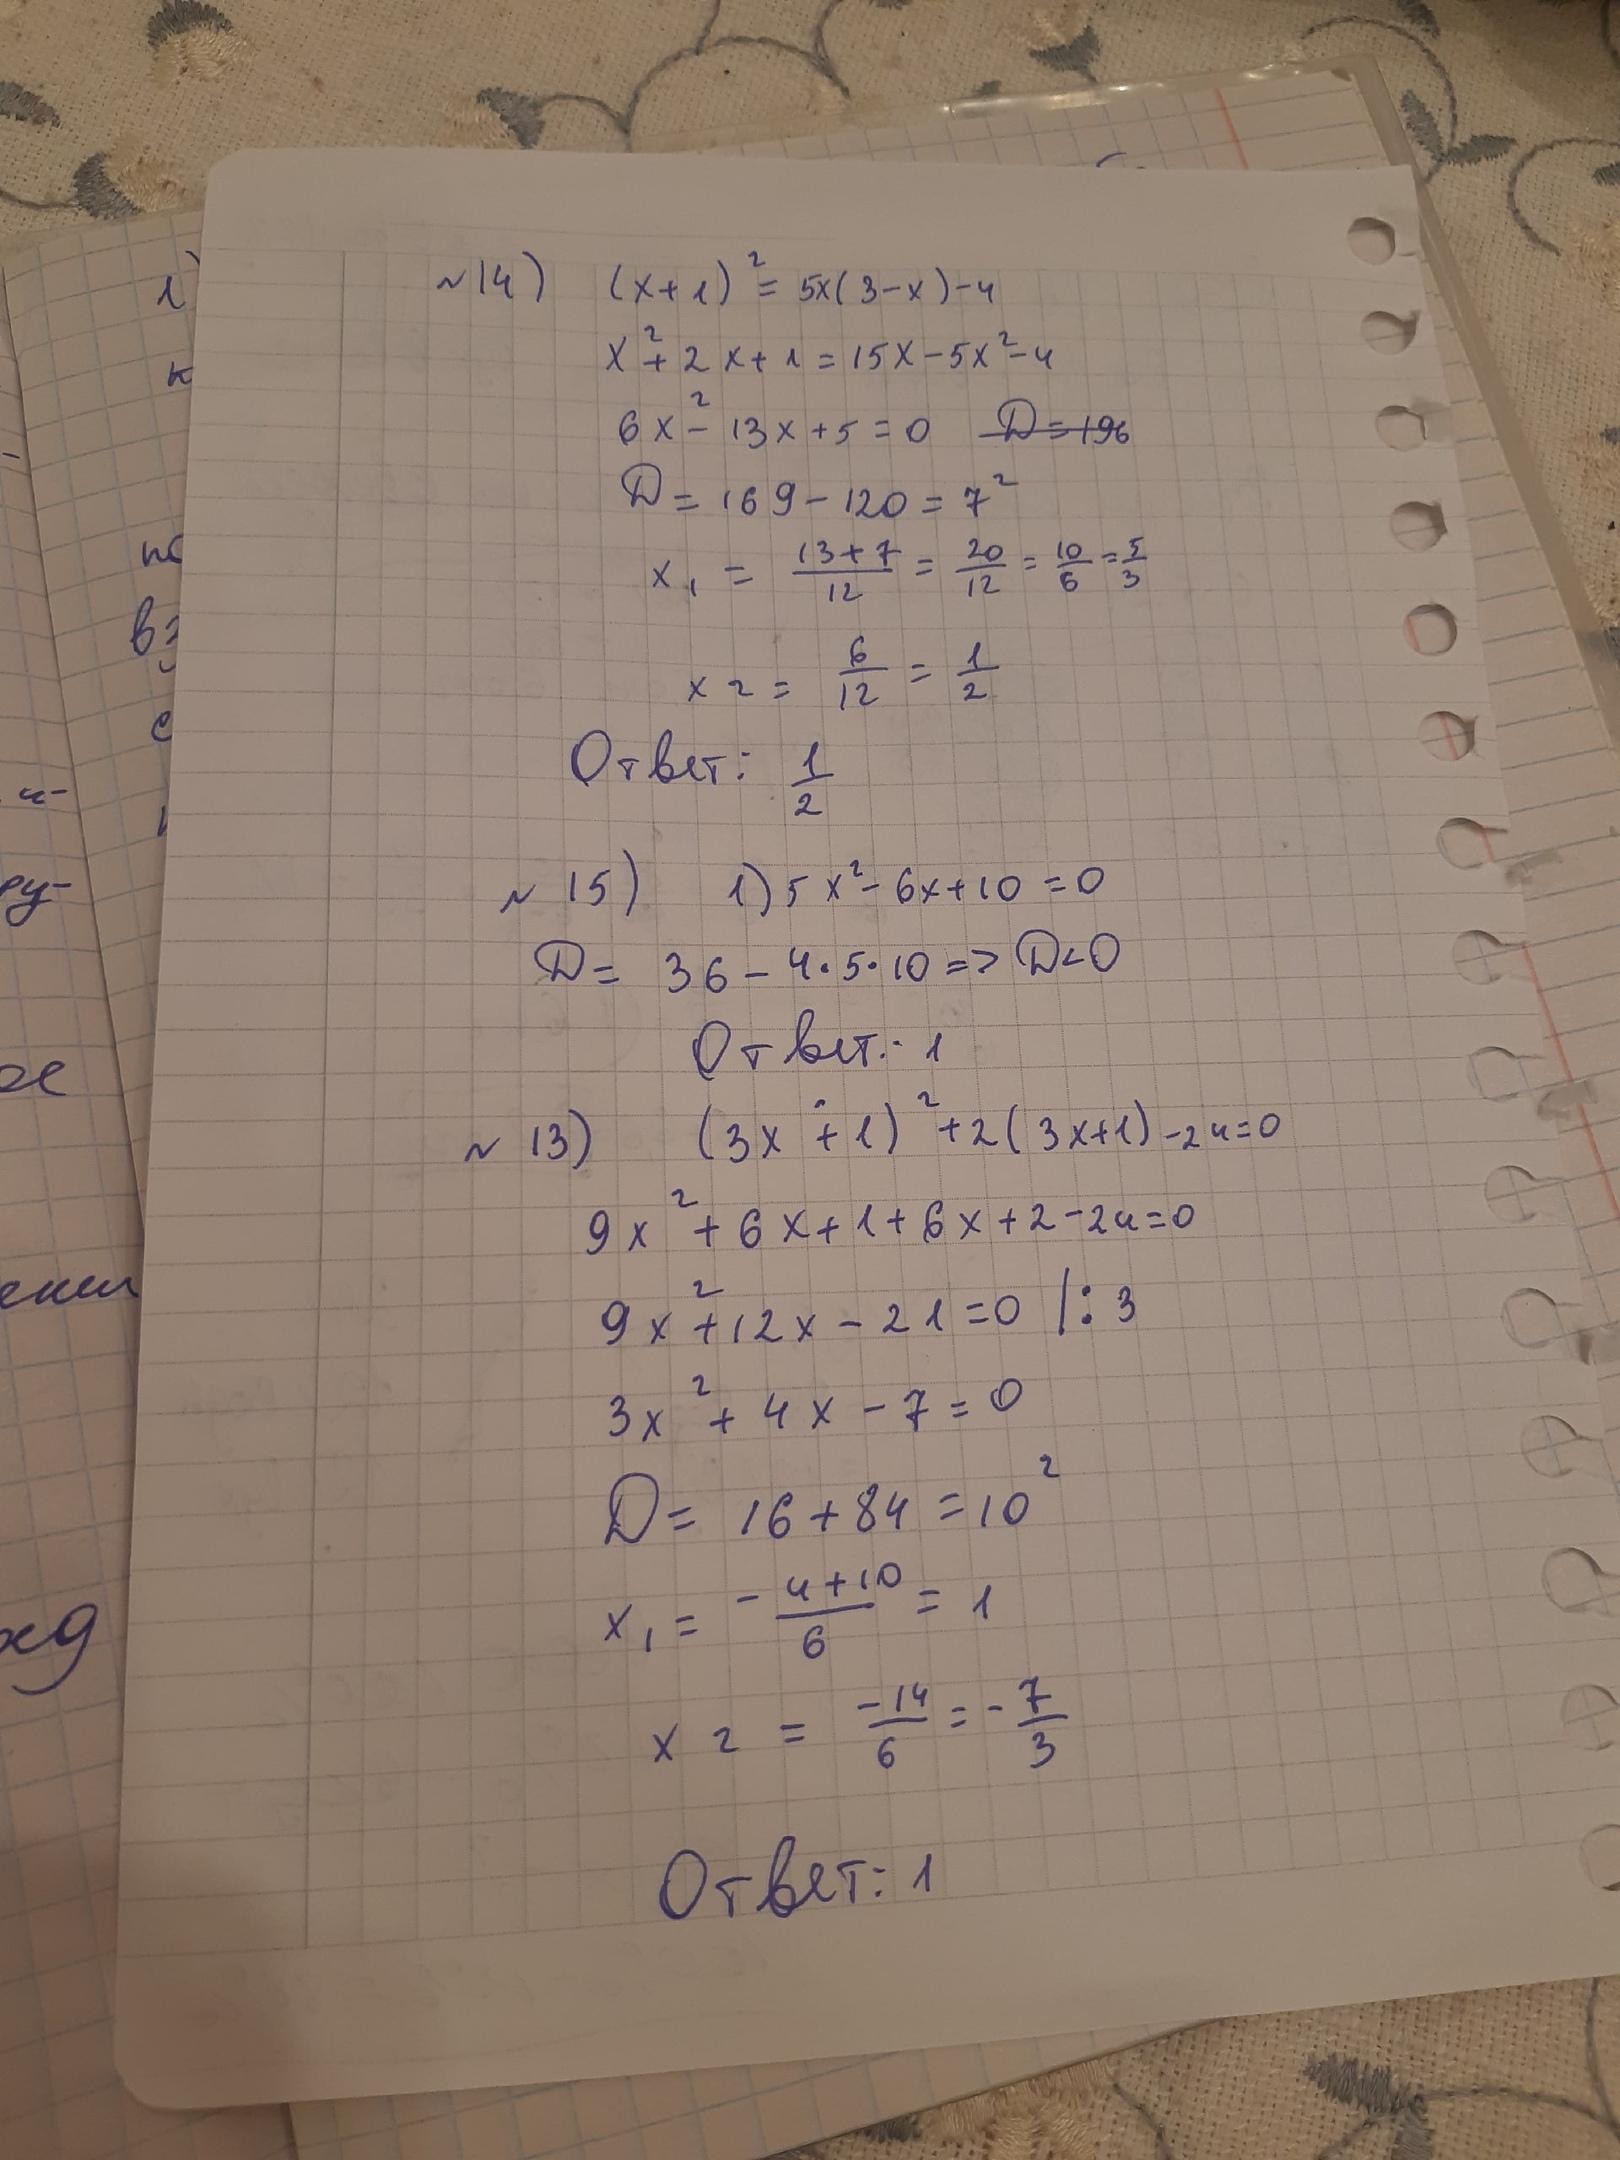 №14) (x+1)² = 5x(3-x)-4
x²+2x+1=15x-5x²-4
6x²-13x+5=0 D=196
D=169-120=7²
x₁ = 13+7/12 = 20/12 = 10/6 = 5/3
x2 = 6/12 = 1/2
Ответ: 1/2
№15) 1) 5x²-6x+10=0
D= 36-4·5·10 => D<0
Ответ: 1
№13) (3x+1)²+2(3x+1)-24=0
9x²+6x+1+6x+2-24=0
9x²+12x-21=0 |:3
3x²+4x-7=0
D= 16+84=10²
x₁= -4+10/6 = 1
x2 = -14/6 = -7/3
Ответ: 1
1)
к
вз
с
ру-
ое